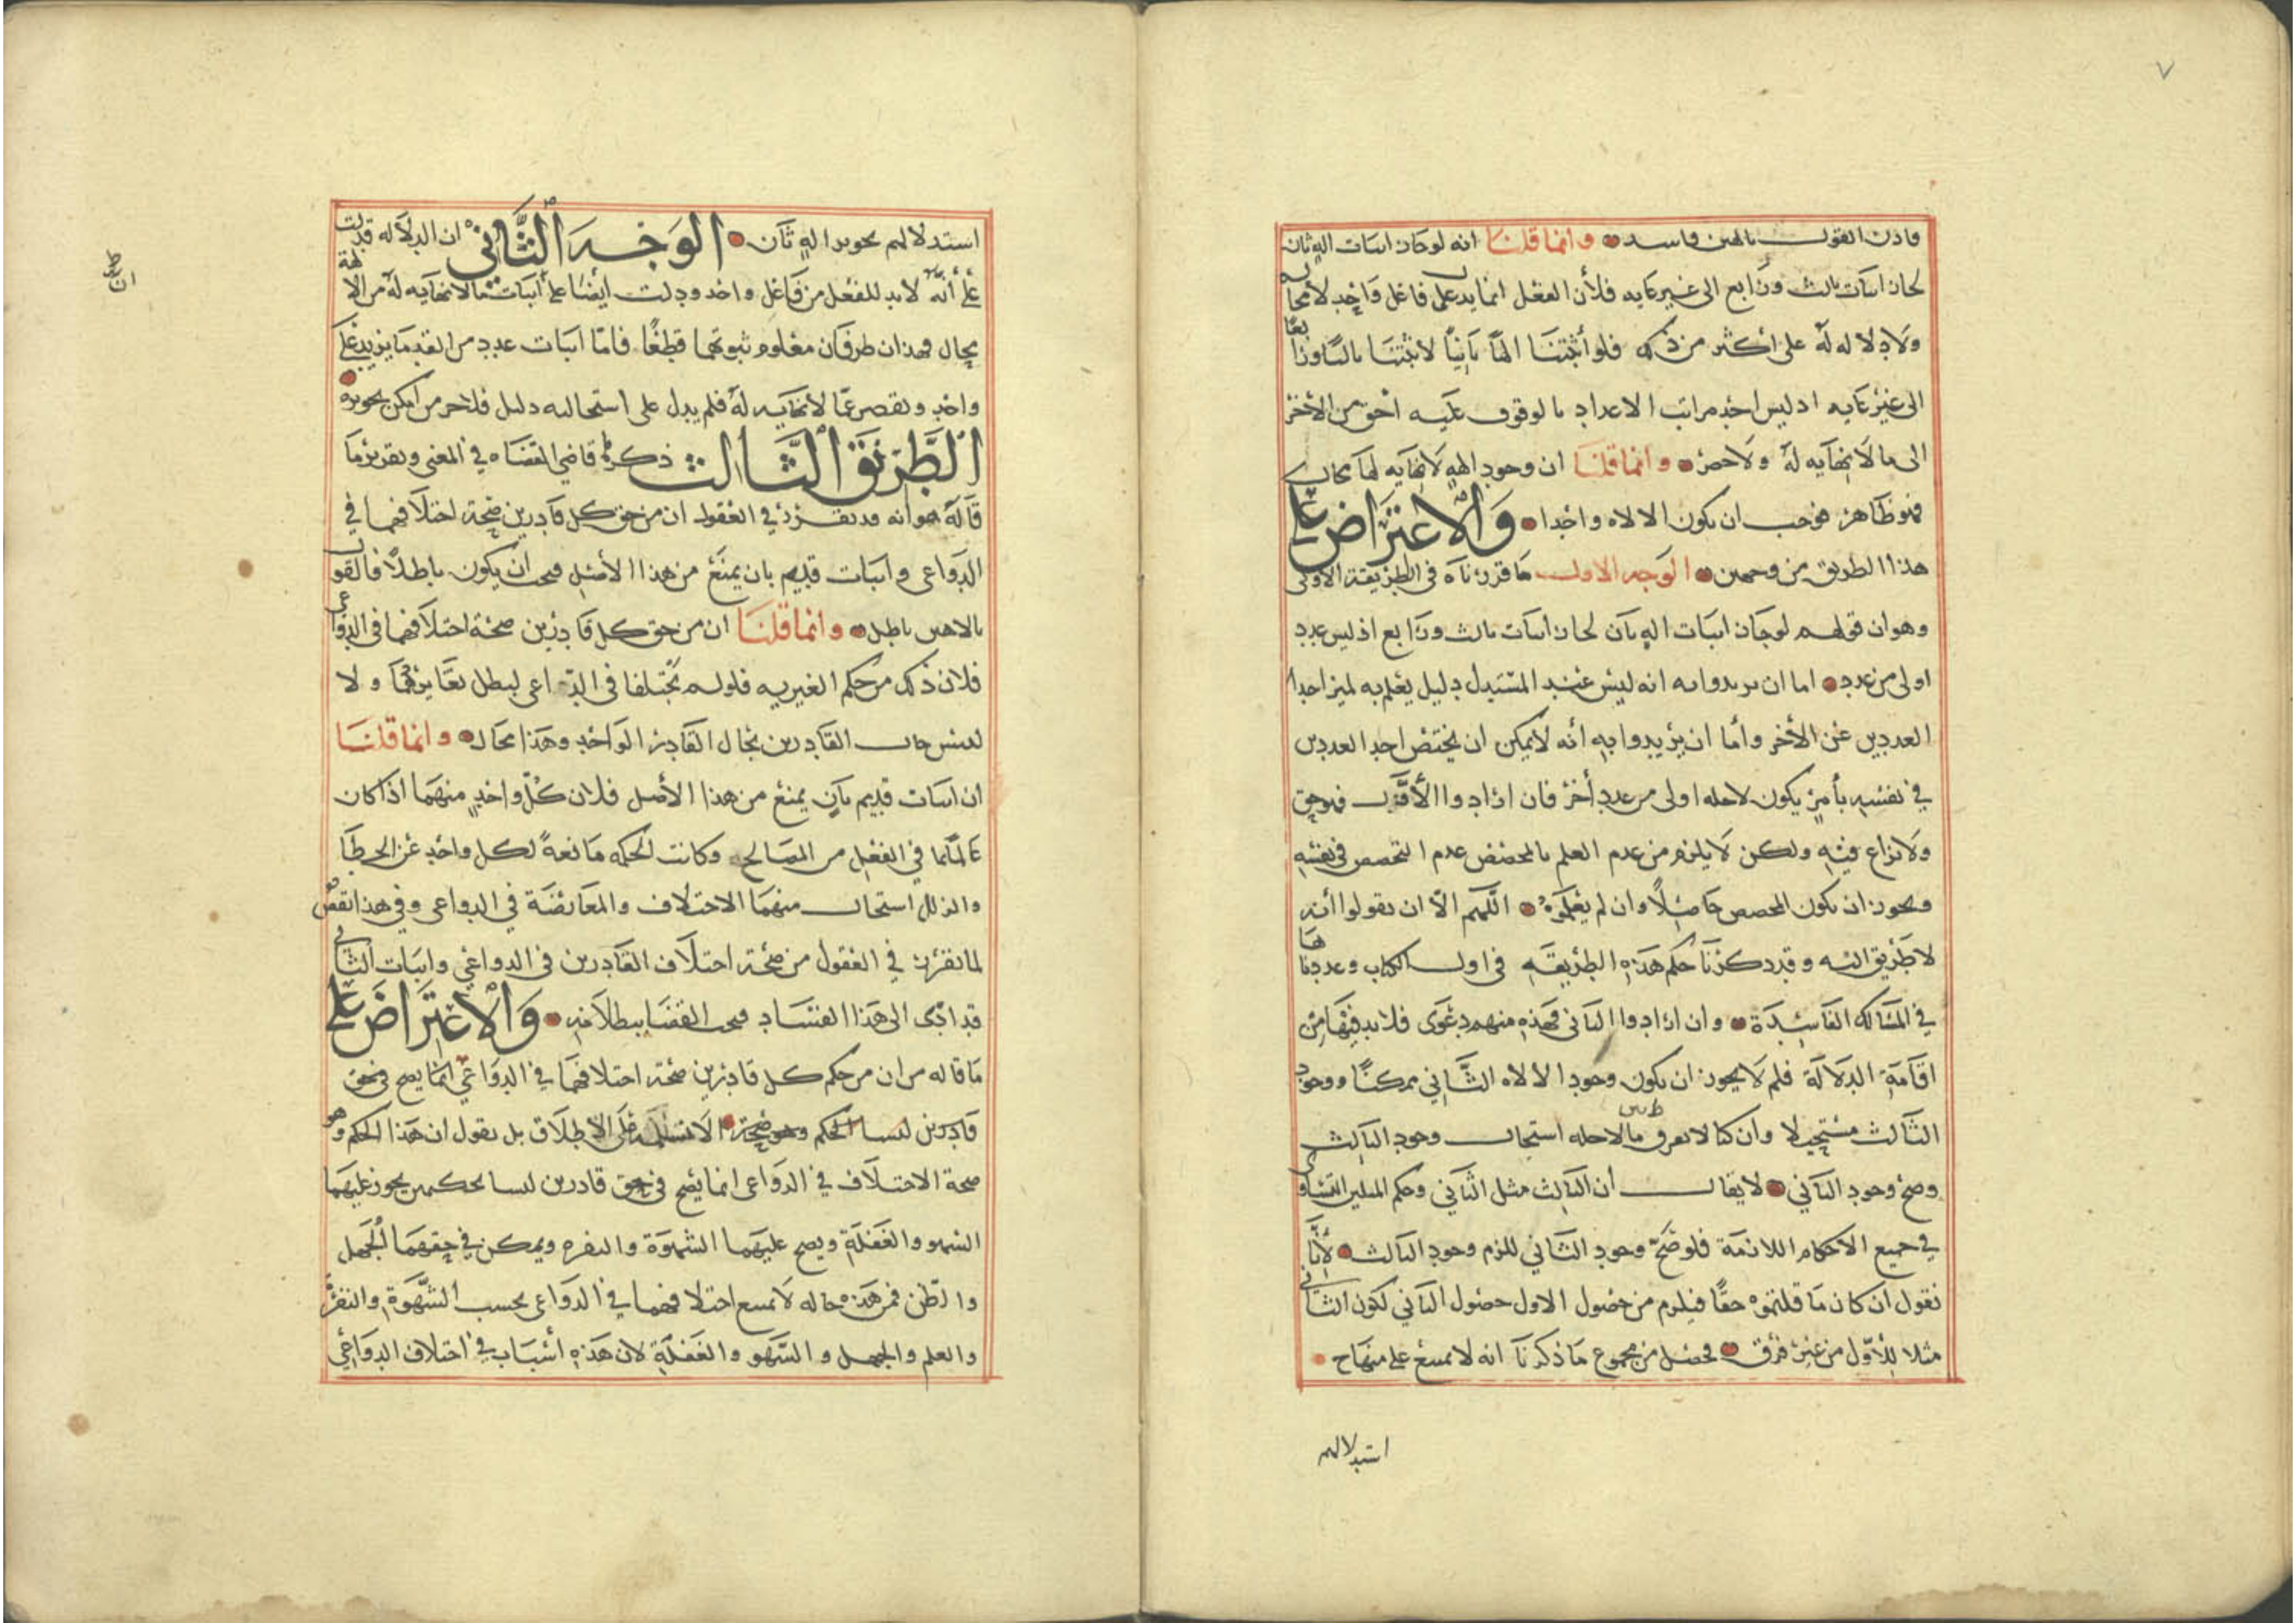 ٧
فاذن القول بالهين فاسد وانما قلنا انه لو جاز اثبات اله ثان
لجاز اثبات ثالث ورابع الى غير غايه فلأن الفعل انما يدل على فاعل واحد لا محاله
ولا دلاله له على أكثر من ذلك فلو أثبتنا الهًا ثانيًا لاثبتنا ثالثًا ورابعًا
الى غير غايه اذ ليس احد مراتب الاعداد بالوقوف عليه احق من الأخر
الى ما لا نهايه له ولا حصر وانما قلنا ان وجود الهه لا نهايه لها محال
فهو ظاهر فوجب ان يكون الالاه واحدا والاعتراض على
هذا الطريق من وجهين الوجه الاول ما قررناه في الطريقة الاولى
وهو ان قولهم لو جاز اثبات اله ثان لجاز اثبات ثالث ورابع اذ ليس عدد
اولى من عدد اما ان يريدوا به انه ليس عند المستدل دليل يعلم به تميز احد
العددين عن الأخر وأما ان يريدوا به أنه لا يمكن ان يختص احد العددين
في نفسه بأمر يكون لاجله اولى من عدد أخر فان ارادوا الأول فهو حق
ولا نزاع فيه ولكن لا يلزم من عدم العلم بالمخصص عدم التخصص في نفسه
ويجوز ان يكون المخصص حاصلًا وان لم يعلموه اللهم الا ان يقولوا أنه
لا طريق اليه وقد ذكرنا حكم هذه الطريقه في اول الكتاب وعددناها
في المسالك الفاسدة وان ارادوا الثاني فهذه منهم دعوى فلا بد فيها من
اقامة الدلالة فلم لا يجوز ان يكون وجود الالاه الثاني ممكنًا ووجود
الثالث مستحيلا وان كنا لا نعرف ما لاجله استحال وجود الثالث
وصح وجود الثاني لا يقال أن الثالث مثل الثاني وحكم المثلين التساوي
في جميع الاحكام اللازمة فلو صح وجود الثاني للزم وجود الثالث لأنا
نقول ان كان ما قلتموه حقًا فيلزم من حصول الاول حصول الثاني لكون الثاني
مثلا للأول من غير فرق فحصل من مجموع ما ذكرنا انه لا يمتنع على منهاج
استدلالهم
استدلالهم تجويز اله ثان الوجه الثاني ان الدلاله قد دلت
على أنه لا بد للفعل من فاعل واحد ودلت أيضًا على أثبات ما لا نهايه له من الالهة
محال فهذان طرفان معلوم ثبوتهما قطعًا فامّا اثبات عدد من القدما يزيد على
واحد ونقصر عمّا لا نهايه له فلم يدل على استحالته دليل فلا جرم امكن تجويزه
الطريق الثالث ذكره قاضي القضاه في المغني وتقرير ما
قاله هو انه قد تقرر في العقول ان من حق كل قادرين صحة اختلافهما في
الدواعي واثبات قديم ثان يمنع من هذا الأصل فيجب أن يكون باطلًا فالقول
بالاهين باطل وانما قلنا ان من حق كل قادرين صحة اختلافهما في الدواعي
فلان ذلك من حكم الغيريه فلو لم يختلفا في الدواعي لبطل تغايرهما ولا
لتبس حال القادرين بحال القادر الواحد وهذا محال وانما قلنا
ان اثبات قديم ثان يمنع من هذا الأصل فلان كلّ واحد منهما اذا كان
عالمًا بما في الفعل من المصالح وكانت الحكمه مانعةً لكل واحد عن الخطا
والزلل استحال منهما الاختلاف والمعارضة في الدواعي وفي هذا نقض
لما تقرر في العقول من صحة اختلاف القادرين في الدواعي واثبات الثاني
قد ادى الى هذا الفساد فيجب القضا ببطلانه والاعتراض على
ما قاله من ان من حكم كل قادرين صحة اختلافهما في الدواعي انما يصح في حق
قادرين ليسا الحكم وهو صحة الا نسلمه على الاطلاق بل نقول ان هذا الحكم وهو
صحة الاختلاف في الدواعي انما يصح في حق قادرين ليسا بحكيمين يجوز عليهما
السهو والغفلة ويصح عليهما الشهوة والنفره ويمكن في حقهما الجهل
والظن فمن هذه حاله لا يمتنع اختلافهما في الدواعي بحسب الشهوة والنفرة
والعلم والجهل والسهو والغفلة لان هذه أسباب في اختلاف الدواعي